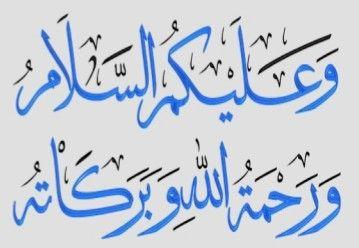 وَعَلَيْكُمُ السَّلَامُ
وَرَحْمَةُ اللهِ وَبَرَكَاتُهُ